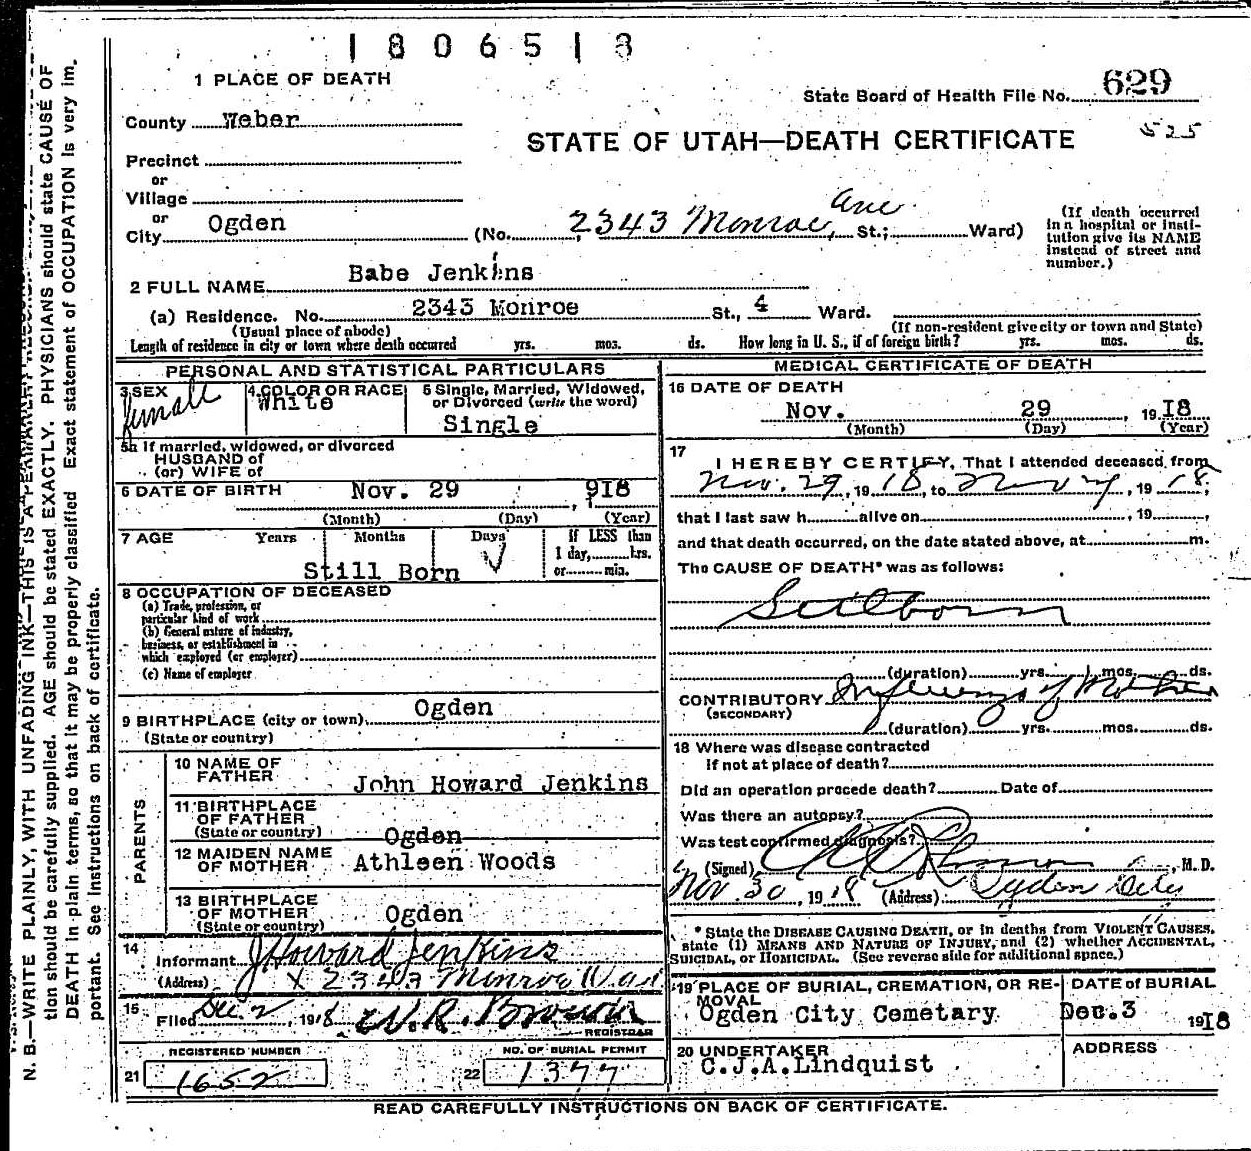 1806518
1 PLACE OF DEATH
State Board of Health File No. 629
County Weber
STATE OF UTAH—DEATH CERTIFICATE
525
Precinct
or
Village
or
City Ogden (No. 2343 Monroe Ave St.; Ward)
(If death occurred
in a hospital or insti-
tution give its NAME
instead of street and
number.)
2 FULL NAME Babe Jenkins
(a) Residence. No. 2343 Monroe St., 4 Ward.
(Usual place of abode) (If non-resident give city or town and State)
Length of residence in city or town where death occurred yrs. mos. ds. How long in U. S., if of foreign birth? yrs. mos. ds.
PERSONAL AND STATISTICAL PARTICULARS
3 SEX
female
4 COLOR OR RACE
White
5 Single, Married, Widowed,
or Divorced (write the word)
Single
5a If married, widowed, or divorced
HUSBAND of
(or) WIFE of
6 DATE OF BIRTH Nov. 29, 1918
(Month) (Day) (Year)
7 AGE Years Months Days If LESS than
1 day, hrs.
Still Born or min.
8 OCCUPATION OF DECEASED
(a) Trade, profession, or
particular kind of work
(b) General nature of industry,
business, or establishment in
which employed (or employer)
(c) Name of employer
9 BIRTHPLACE (city or town) Ogden
(State or country)
PARENTS
10 NAME OF
FATHER John Howard Jenkins
11 BIRTHPLACE
OF FATHER
(State or country) Ogden
12 MAIDEN NAME
OF MOTHER Athleen Woods
13 BIRTHPLACE
OF MOTHER
(State or country) Ogden
14
Informant J Howard Jenkins
(Address) X 2343 Monroe
15
Filed Dec. 2, 1918 W. R. Brown
REGISTRAR
REGISTERED NUMBER
21 1652
NO. OF BURIAL PERMIT
22 1377
MEDICAL CERTIFICATE OF DEATH
16 DATE OF DEATH
Nov. 29, 1918
(Month) (Day) (Year)
17
I HEREBY CERTIFY, That I attended deceased from
Nov. 29, 1918, to Nov 29, 1918,
that I last saw h alive on , 19 ,
and that death occurred, on the date stated above, at m.
The CAUSE OF DEATH* was as follows:
Stillborn
(duration) yrs. mos. ds.
CONTRIBUTORY Influenza of Mother
(SECONDARY)
(duration) yrs. mos. ds.
18 Where was disease contracted
If not at place of death?
Did an operation precede death? Date of
Was there an autopsy?
Was test confirmed diagnosis?
(Signed) , M. D.
Nov. 30, 1918 (Address) Ogden City
* State the DISEASE CAUSING DEATH, or in deaths from VIOLENT CAUSES,
state (1) MEANS AND NATURE OF INJURY, and (2) whether ACCIDENTAL,
SUICIDAL, or HOMICIDAL. (See reverse side for additional space.)
19 PLACE OF BURIAL, CREMATION, OR RE-
MOVAL
Ogden City Cemetary
DATE of BURIAL
Dec. 3 1918
20 UNDERTAKER
C.J.A.Lindquist
ADDRESS
READ CAREFULLY INSTRUCTIONS ON BACK OF CERTIFICATE.
N. B.—WRITE PLAINLY, WITH UNFADING INK—THIS IS A PERMANENT RECORD.
tion should be carefully supplied. AGE should be stated EXACTLY. PHYSICIANS should state CAUSE OF
DEATH in plain terms, so that it may be properly classified Exact statement of OCCUPATION is very im.
portant. See instructions on back of certificate.